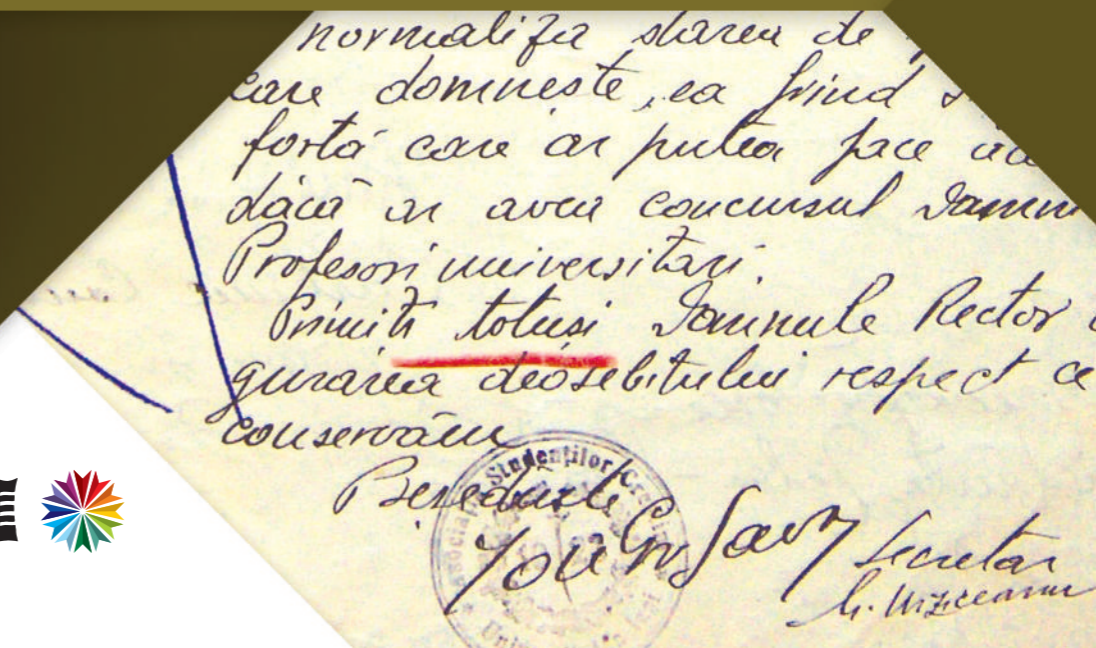 normaliza starea de
care domneste, ea fiind
forta care ar putea face
dácă ar avea concursul Domni
Profesori universitari.
Primiti totusi Domnule Rector
gurarea deosebitului respect ce
conservăm
Presedinte
Secretar
Asociaţia Studenţilor Creştini
Univers